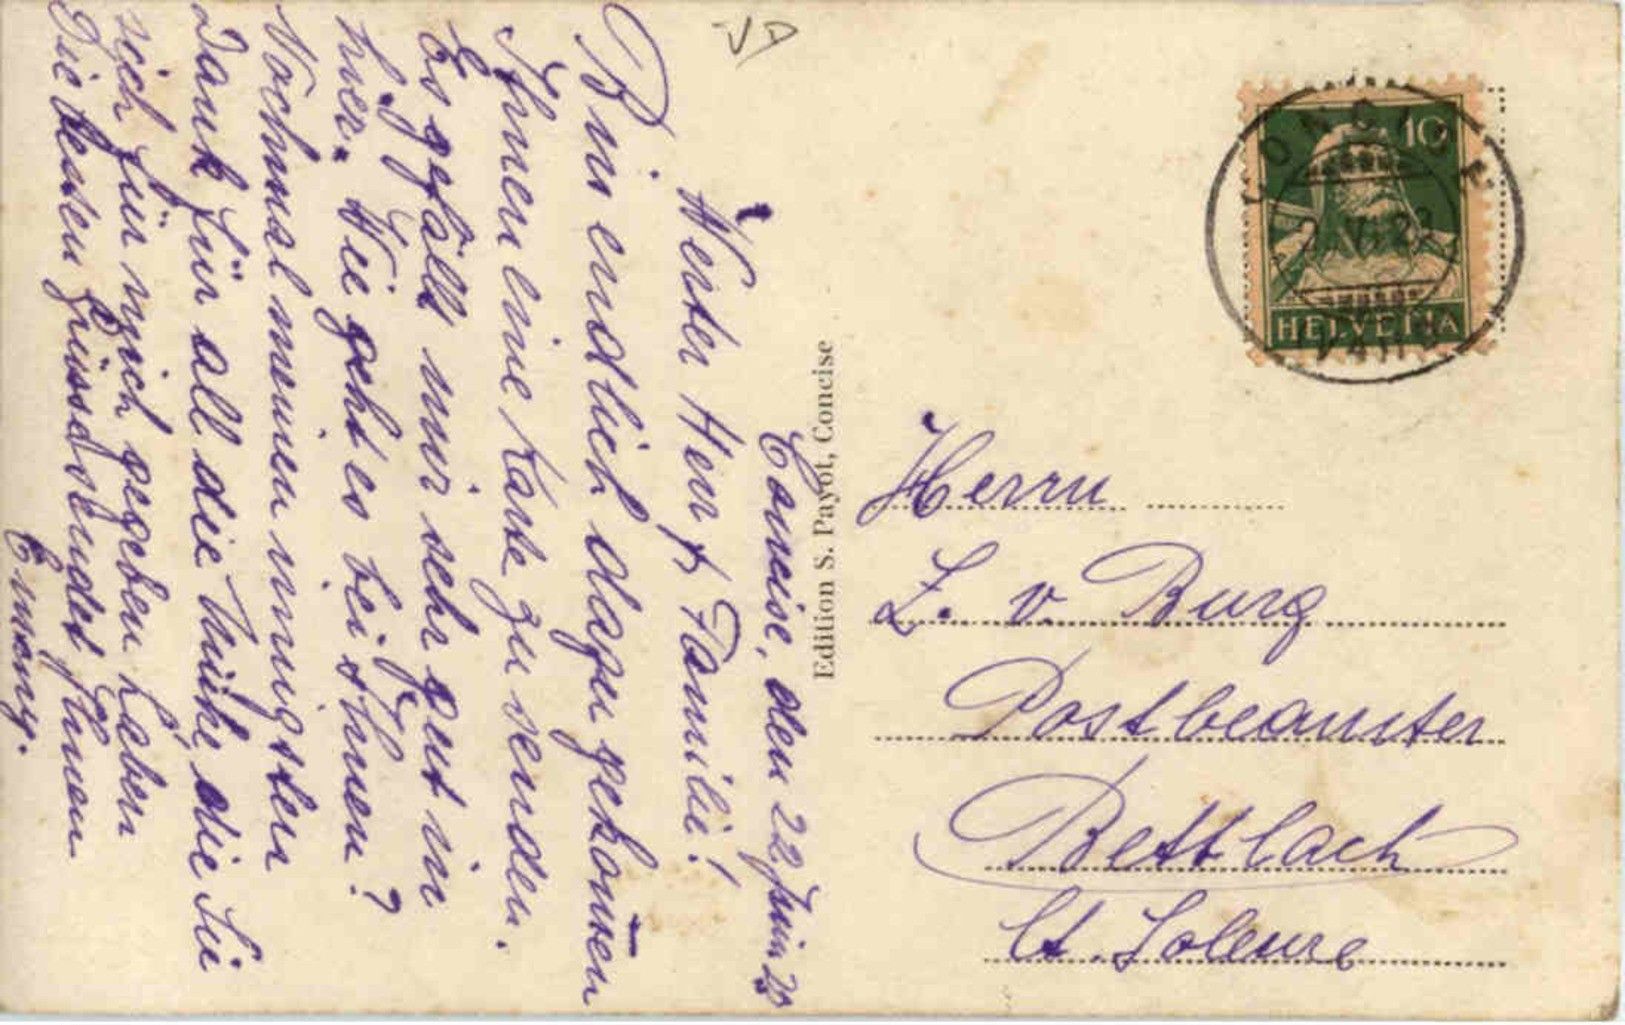 Concise, den 22 Juni 28
Werter Herr & Familie!
Bin endlich dazu gekom̄en
Ihnen eine Karte zu senden.
Es gefällt mir sehr gut in
hier. Wie geht es bei Ihnen?
Nochmal meinen innigsten
Dank für all die Mühe, die Sie
sich für mich gegeben haben
Die besten Grüsse sendet Ihnen
Emmy.
Edition S. Payot, Concise
10
HELVETIA
CONCISE
Herrn
Z. v. Burg
Postbeamter
Bettlach
Ct. Soleure